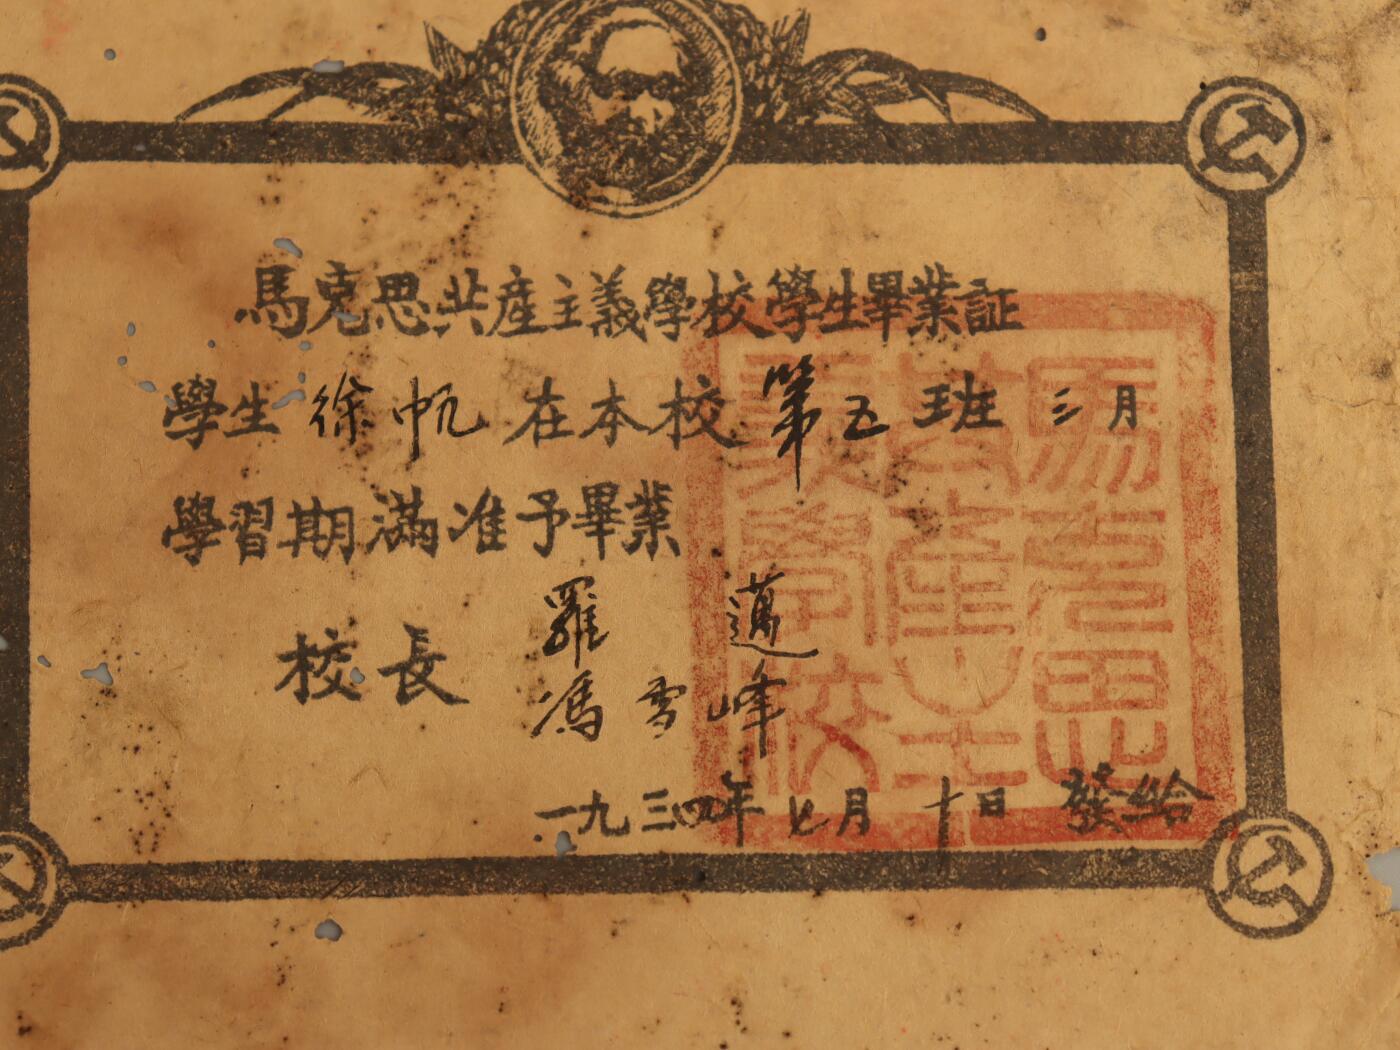 馬克思共產主義學校學生畢業証
學生 徐帆 在本校 第五班 三月
學習期滿准予畢業
校長 羅邁
馮雪峰
一九三四年七月十日發給
馬克思共產主義學校